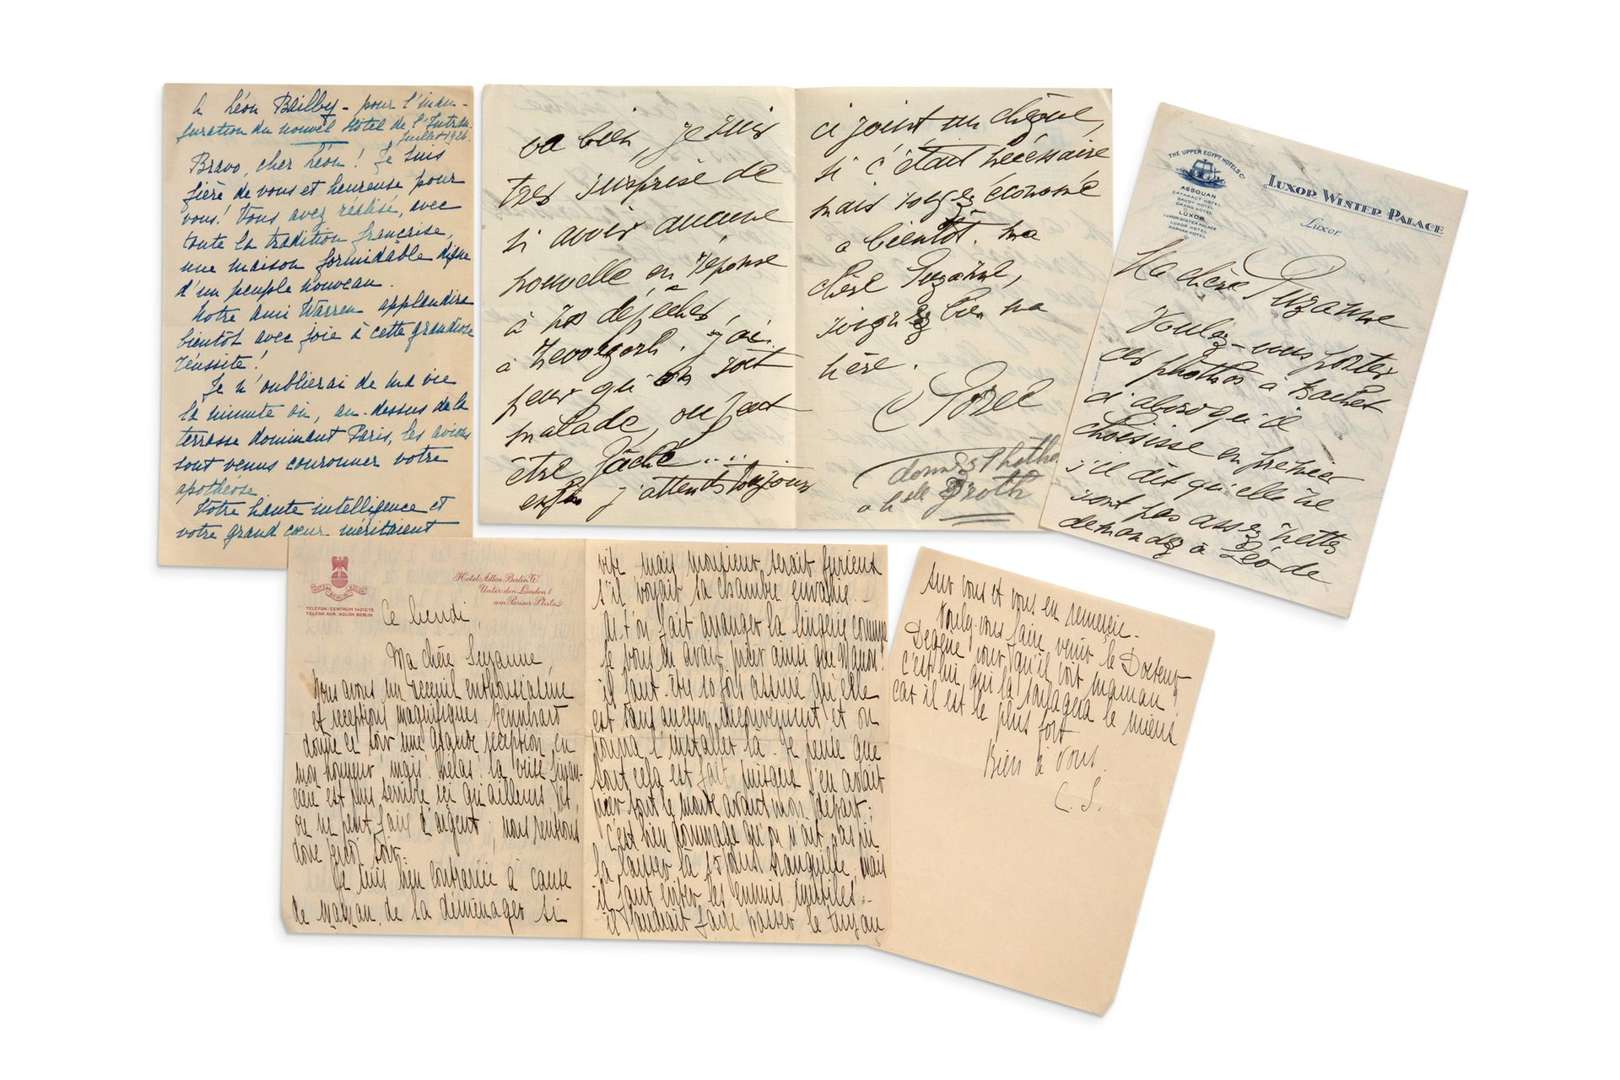 A Léon Bailby - pour l'inau-
guration du nouvel Hôtel de l'Intran.
Juillet 1924.
Bravo, cher Léon! Je suis
fière de vous et heureuse pour
vous! Vous avez réalisé, avec
toute la tradition française,
une maison formidable digne
d'un peuple nouveau.
Notre ami Warren applaudira
bientôt avec joie à cette grandiose
réussite!
Je n'oublierai de ma vie
la minute où, au-dessus de la
terrasse dominant Paris, les avions
sont venus couronner votre
apothéose.
Votre haute intelligence et
votre grand cœur méritaient
va bien, je suis
très surprise de
si avoir aucune
nouvelle en réponse
à nos dépêches
à . j'ai
peur qu'on soit
malade, ou peut
être fâché....
enfin j'attends toujours
ci joint un chèque,
si c'était nécessaire
mais soyez économe
a bientôt. ma
chère Suzanne,
soignez bien ma
mère.
C Sorel
donnez 1 photho
a Melle Groth
THE UPPER EGYPT HOTELS Co
ASSOUAN
CATARACT HOTEL
SAVOY HOTEL
GRAND HOTEL
LUXOR
LUXOR WINTER PALACE
LUXOR HOTEL
KARNAK HOTEL
LUXOR WINTER PALACE
Luxor
Ma chère Suzanne
Voulez-vous porter
ces phothos a
d'abord qu'il
choisisse en premier
s'il dit qu'elle ne
sont pas assez nettes
demandez à Léo de
Hotel Adlon Berlin W
Unter den Linden 1
am Pariser Platz
TELEFON: CENTRUM
TELEGR. ADR. ADLON BERLIN
Ce lundi,
Ma chère Suzanne,
Nous avons un acceuil enthousiasme
et receptions magnifiques. Reinhardt
donne ce soir une grande reception en
mon honneur, mais hélas! la crise finan-
cière est plus terrible ici qu'ailleurs et
on ne peut faire d'argent; nous rentrons
donc
Je suis bien contrariée à cause
de maman de la déménager si
vite mais monsieur serait furieux
s'il voyait sa chambre envahie...
A-t-on fait arranger la lingerie comme
je vous en avais prier ainsi que Manon?
il faut être so fort assuré qu'elle
est sans aucun mouvement et on
pourra l'installer là. Je pense que
tout cela est fait puisque j'en avait
tout le monde avant mon départ.
C'est bien dommage qu'on n'ait pas pu
la laisser là 15 jours tranquille, mais
il faut éviter les ennuis inutiles...
il faudrait faire passer le tuyau
sur vous et vous en remercie.
Voulez-vous faire venir le Docteur
pour qu'il voit maman,
c'est lui qui la soulagera le mieux
car il est le plus fort
Bien à vous.
C. S.